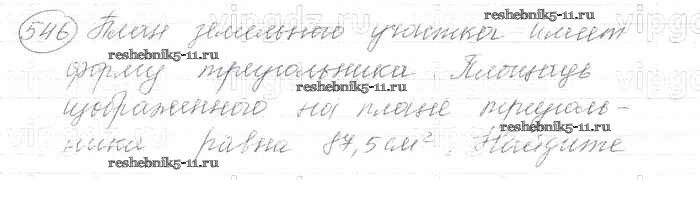 546 План земельного участка имеет
форму треугольника. Площадь
изображенного на плане треуголь-
ника равна 87,5 см². Найдите
reshebnik5-11.ru
reshebnik5-11.ru
reshebnik5-11.ru
reshebnik5-11.ru